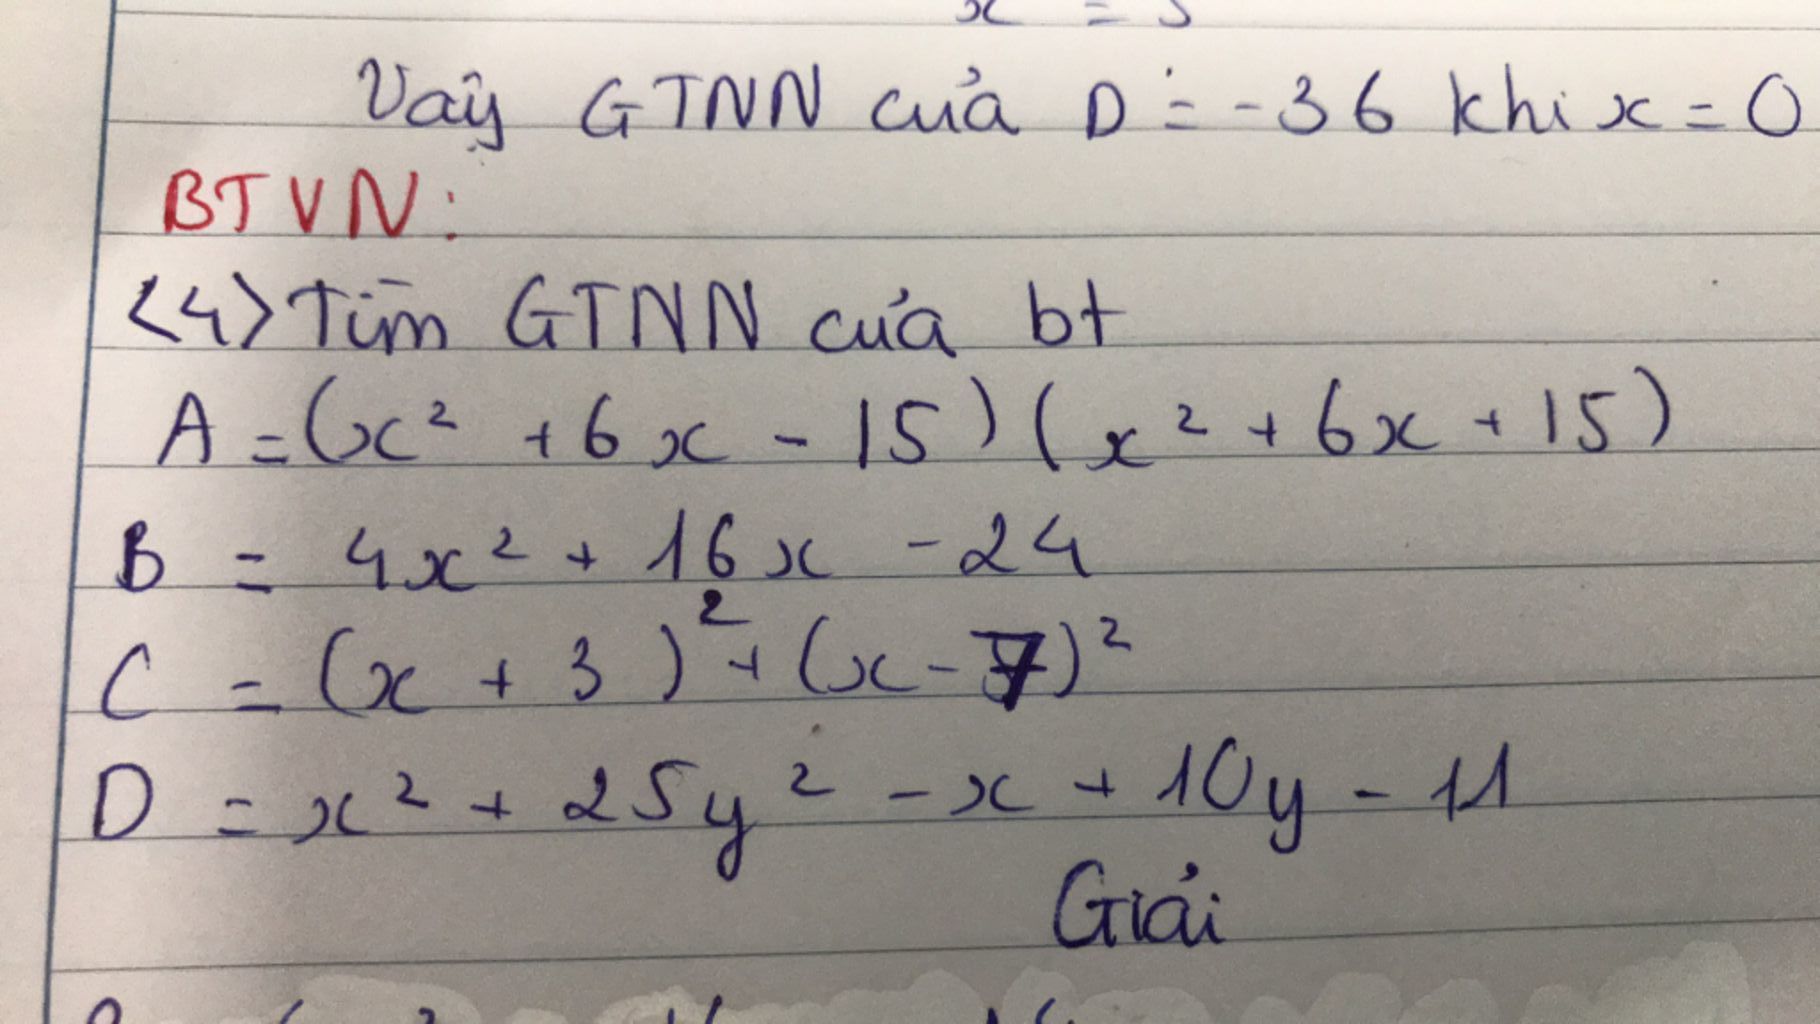 x = 5
Vaỹ GTNN của D = -36 khi x = 0
BTVN:
<4> Tìm GTNN của bt
A = (x² + 6x - 15) (x² + 6x + 15)
B = 4x² + 16x - 24
C = (x + 3)² + (x - 7)²
D = x² + 25y² - x + 10y - 11
Giải